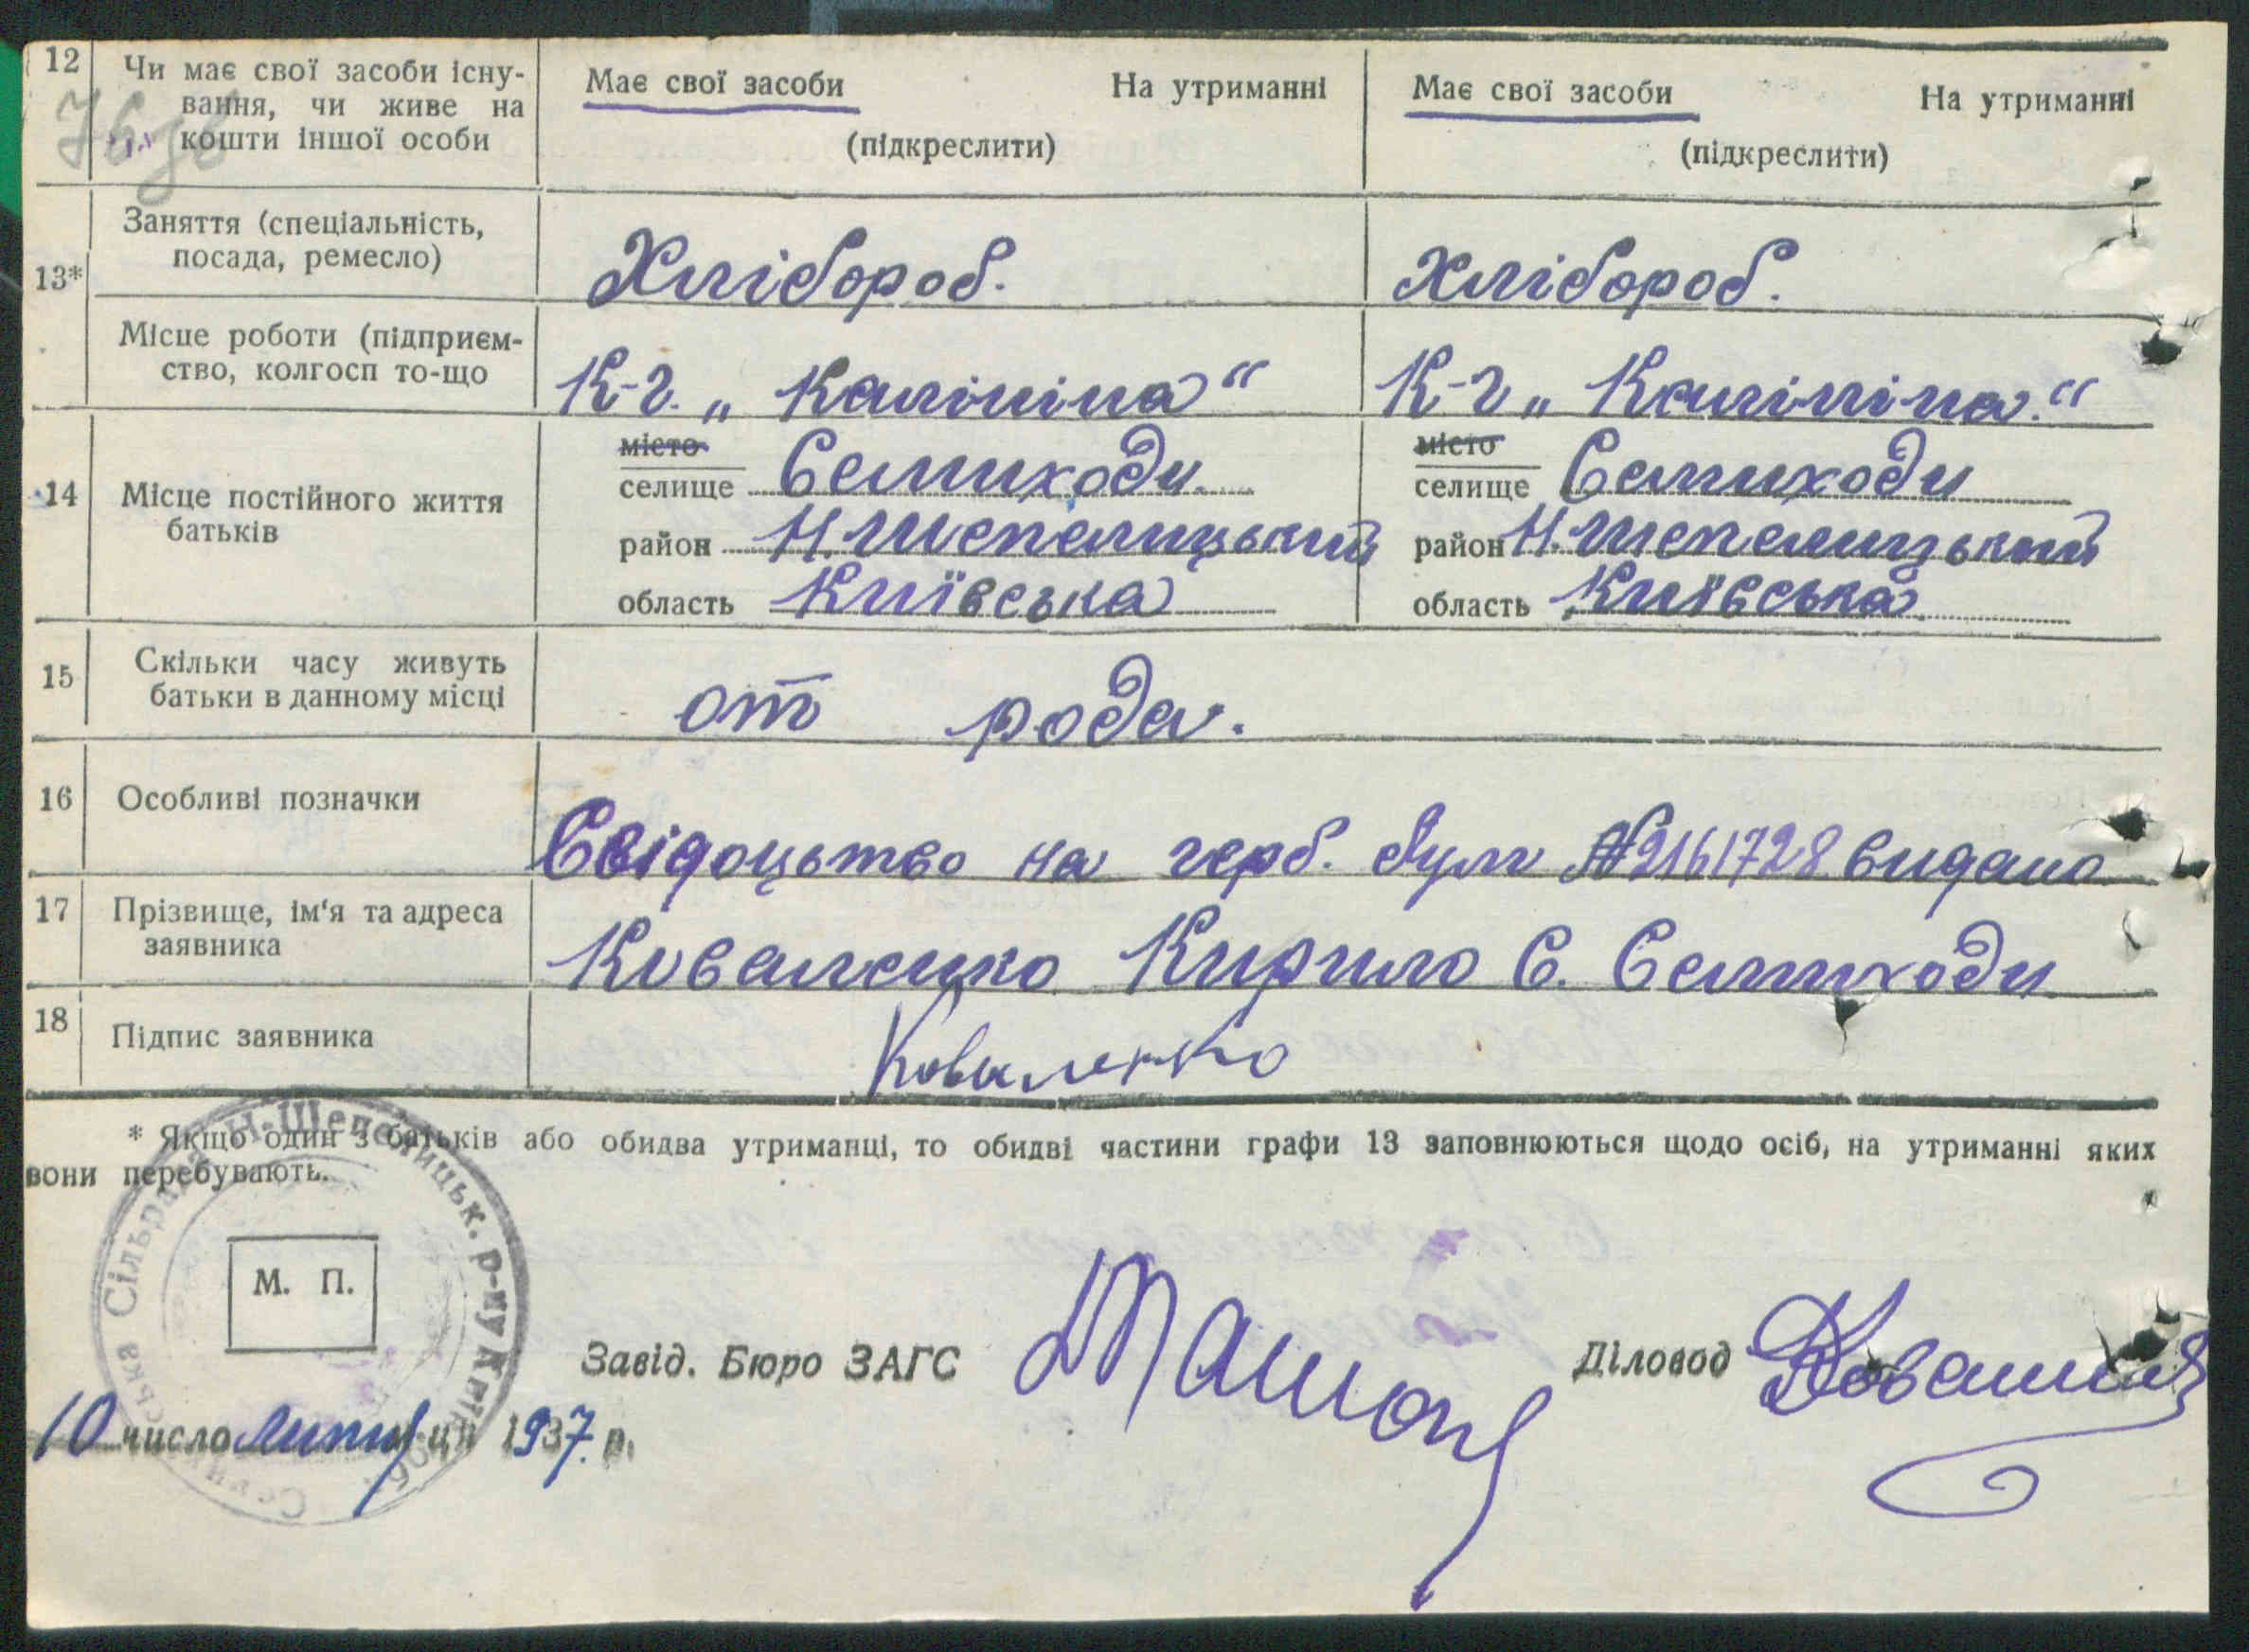 12 Чи має свої засоби існу-
вання, чи живе на
кошти іншої особи
Має свої засоби На утриманні
(підкреслити)
Має свої засоби На утриманні
(підкреслити)
13*
Заняття (спеціальність,
посада, ремесло)
Хлібороб. Хлібороб.
Місце роботи (підприєм-
ство, колгосп то-що
К-г. „Калініна“ К-г „Калініна.“
14 Місце постійного життя
батьків
місто
селище Семиходи.
район Н. Шепелицький
область Київська
місто
селище Семиходи
район Н. Шепелицький
область Київська
15 Скільки часу живуть
батьки в данному місці
от рода.
16 Особливі позначки
Свідоцьтво на герб. бум №2161728 видано
17 Прізвище, ім‘я та адреса
заявника
Коваленко Кирило С. Семиходи
18 Підпис заявника
Коваленко
* Якщо один з батьків або обидва утриманці, то обидві частини графи 13 заповнюються щодо осіб, на утриманні яких
вони перебувають.
Сільрада Н-Шепелицьк. р-ну
М. П.
Завід. Бюро ЗАГС
Діловод
10 число липня 1937. р.